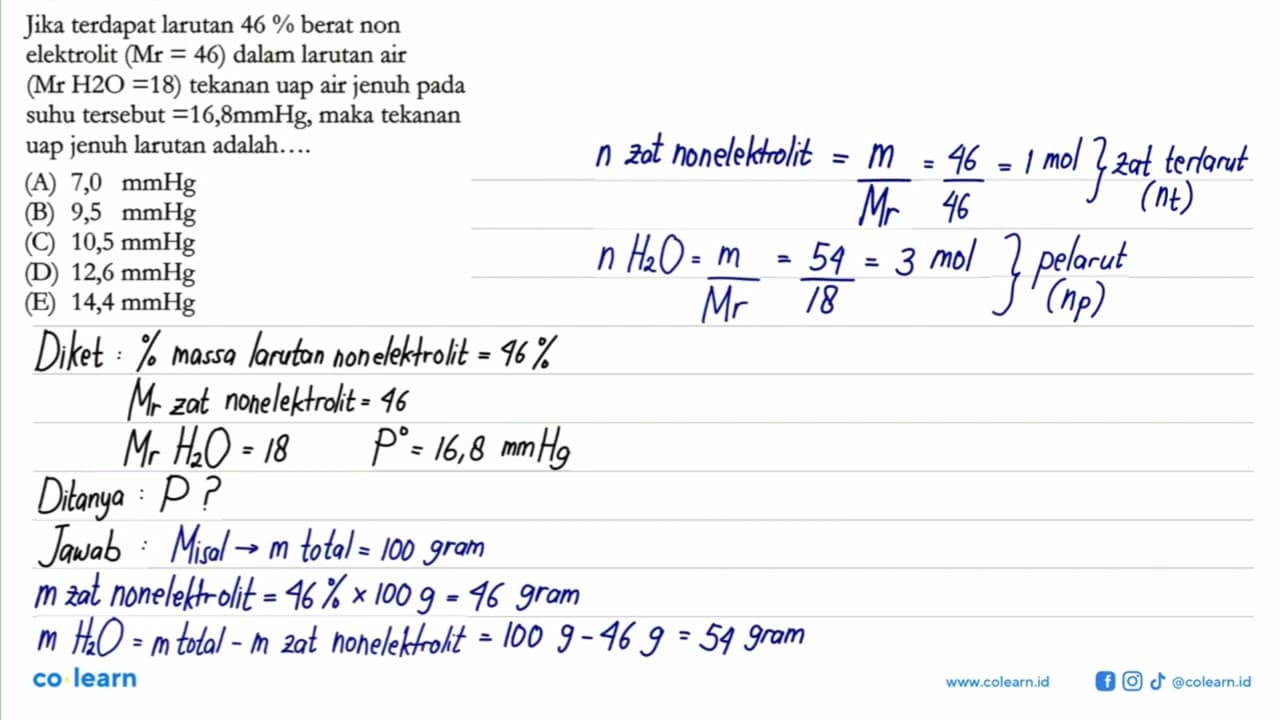 Jika terdapat larutan 46 % berat non
elektrolit (Mr = 46) dalam larutan air
(Mr H2O =18) tekanan uap air jenuh pada
suhu tersebut =16,8mmHg, maka tekanan
uap jenuh larutan adalah….
(A) 7,0 mmHg
(B) 9,5 mmHg
(C) 10,5 mmHg
(D) 12,6 mmHg
(E) 14,4 mmHg
n zat nonelektrolit = m/Mr = 46/46 = 1 mol } zat terlarut (nt)
n H₂O = m/Mr = 54/18 = 3 mol } pelarut (np)
Diket : % massa larutan nonelektrolit = 46%
Mr zat nonelektrolit = 46
Mr H₂O = 18 P° = 16,8 mmHg
Ditanya : P ?
Jawab : Misal → m total = 100 gram
m zat nonelektrolit = 46% × 100 g = 46 gram
m H₂O = m total - m zat nonelektrolit = 100 g - 46 g = 54 gram
co learn
www.colearn.id
@colearn.id